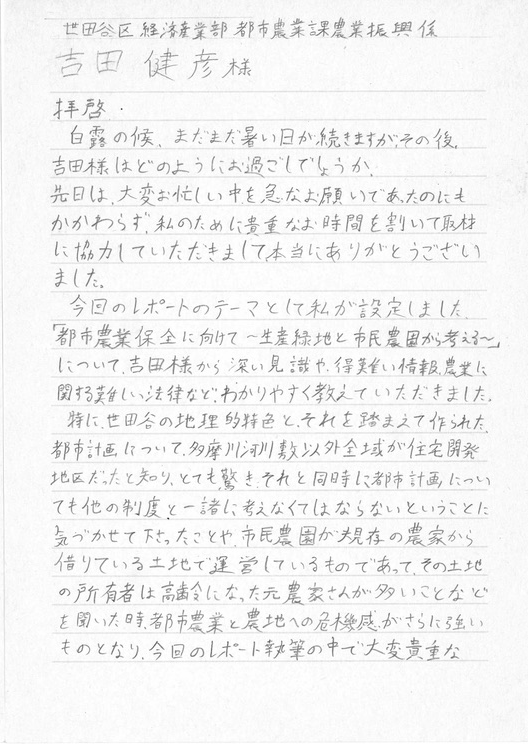 世田谷区 経済産業部 都市農業課農業振興係
吉田 健彦様
拝啓.
白露の候、まだまだ暑い日が続きますが、その後、
吉田様はどのようにお過ごしでしょうか。
先日は、大変お忙しい中を急なお願いであったのにも
かかわらず、私のために貴重なお時間を割いて取材
に協力していただきまして、本当にありがとうござい
ました。
今回のレポートのテーマとして私が設定しました、
「都市農業保全に向けて～生産緑地と市民農園から考える～」
について、吉田様から深い見識や、得難い情報、農業に
関する難しい法律など、わかりやすく教えていただきました。
特に、世田谷の地理的特色と、それを踏まえて作られた、
都市計画について、多摩川河川敷以外全域が住宅開発
地区だったと知り、とても驚き、それと同時に都市計画につい
ても他の制度と一諸に考えなくてはならないということに
気づかせて下さったことや、市民農園が既存の農家から
借りている土地で運営しているものであって、その土地
の所有者は高齢になった元農家さんが多いことなど
を聞いた時、都市農業と農地への危機感がさらに強い
ものとなり、今回のレポート執筆の中で大変貴重な